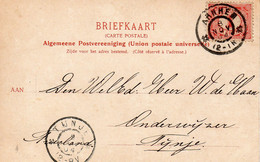 BRIEFKAART
(CARTE POSTALE)
Algemeene Postvereeniging (Union postale universelle)
Zijde voor het adres bestemd. (Côté réservé à l'adresse.)
ARNHEM
12-1N
AAN
Den WelEd. Heer W de Haan
Onderwijzer
Nijnje